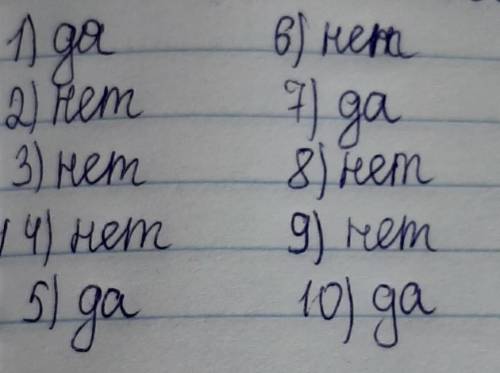 1) да
2) нет
3) нет
4) нет
5) да
6) нет
7) да
8) нет
9) нет
10) да